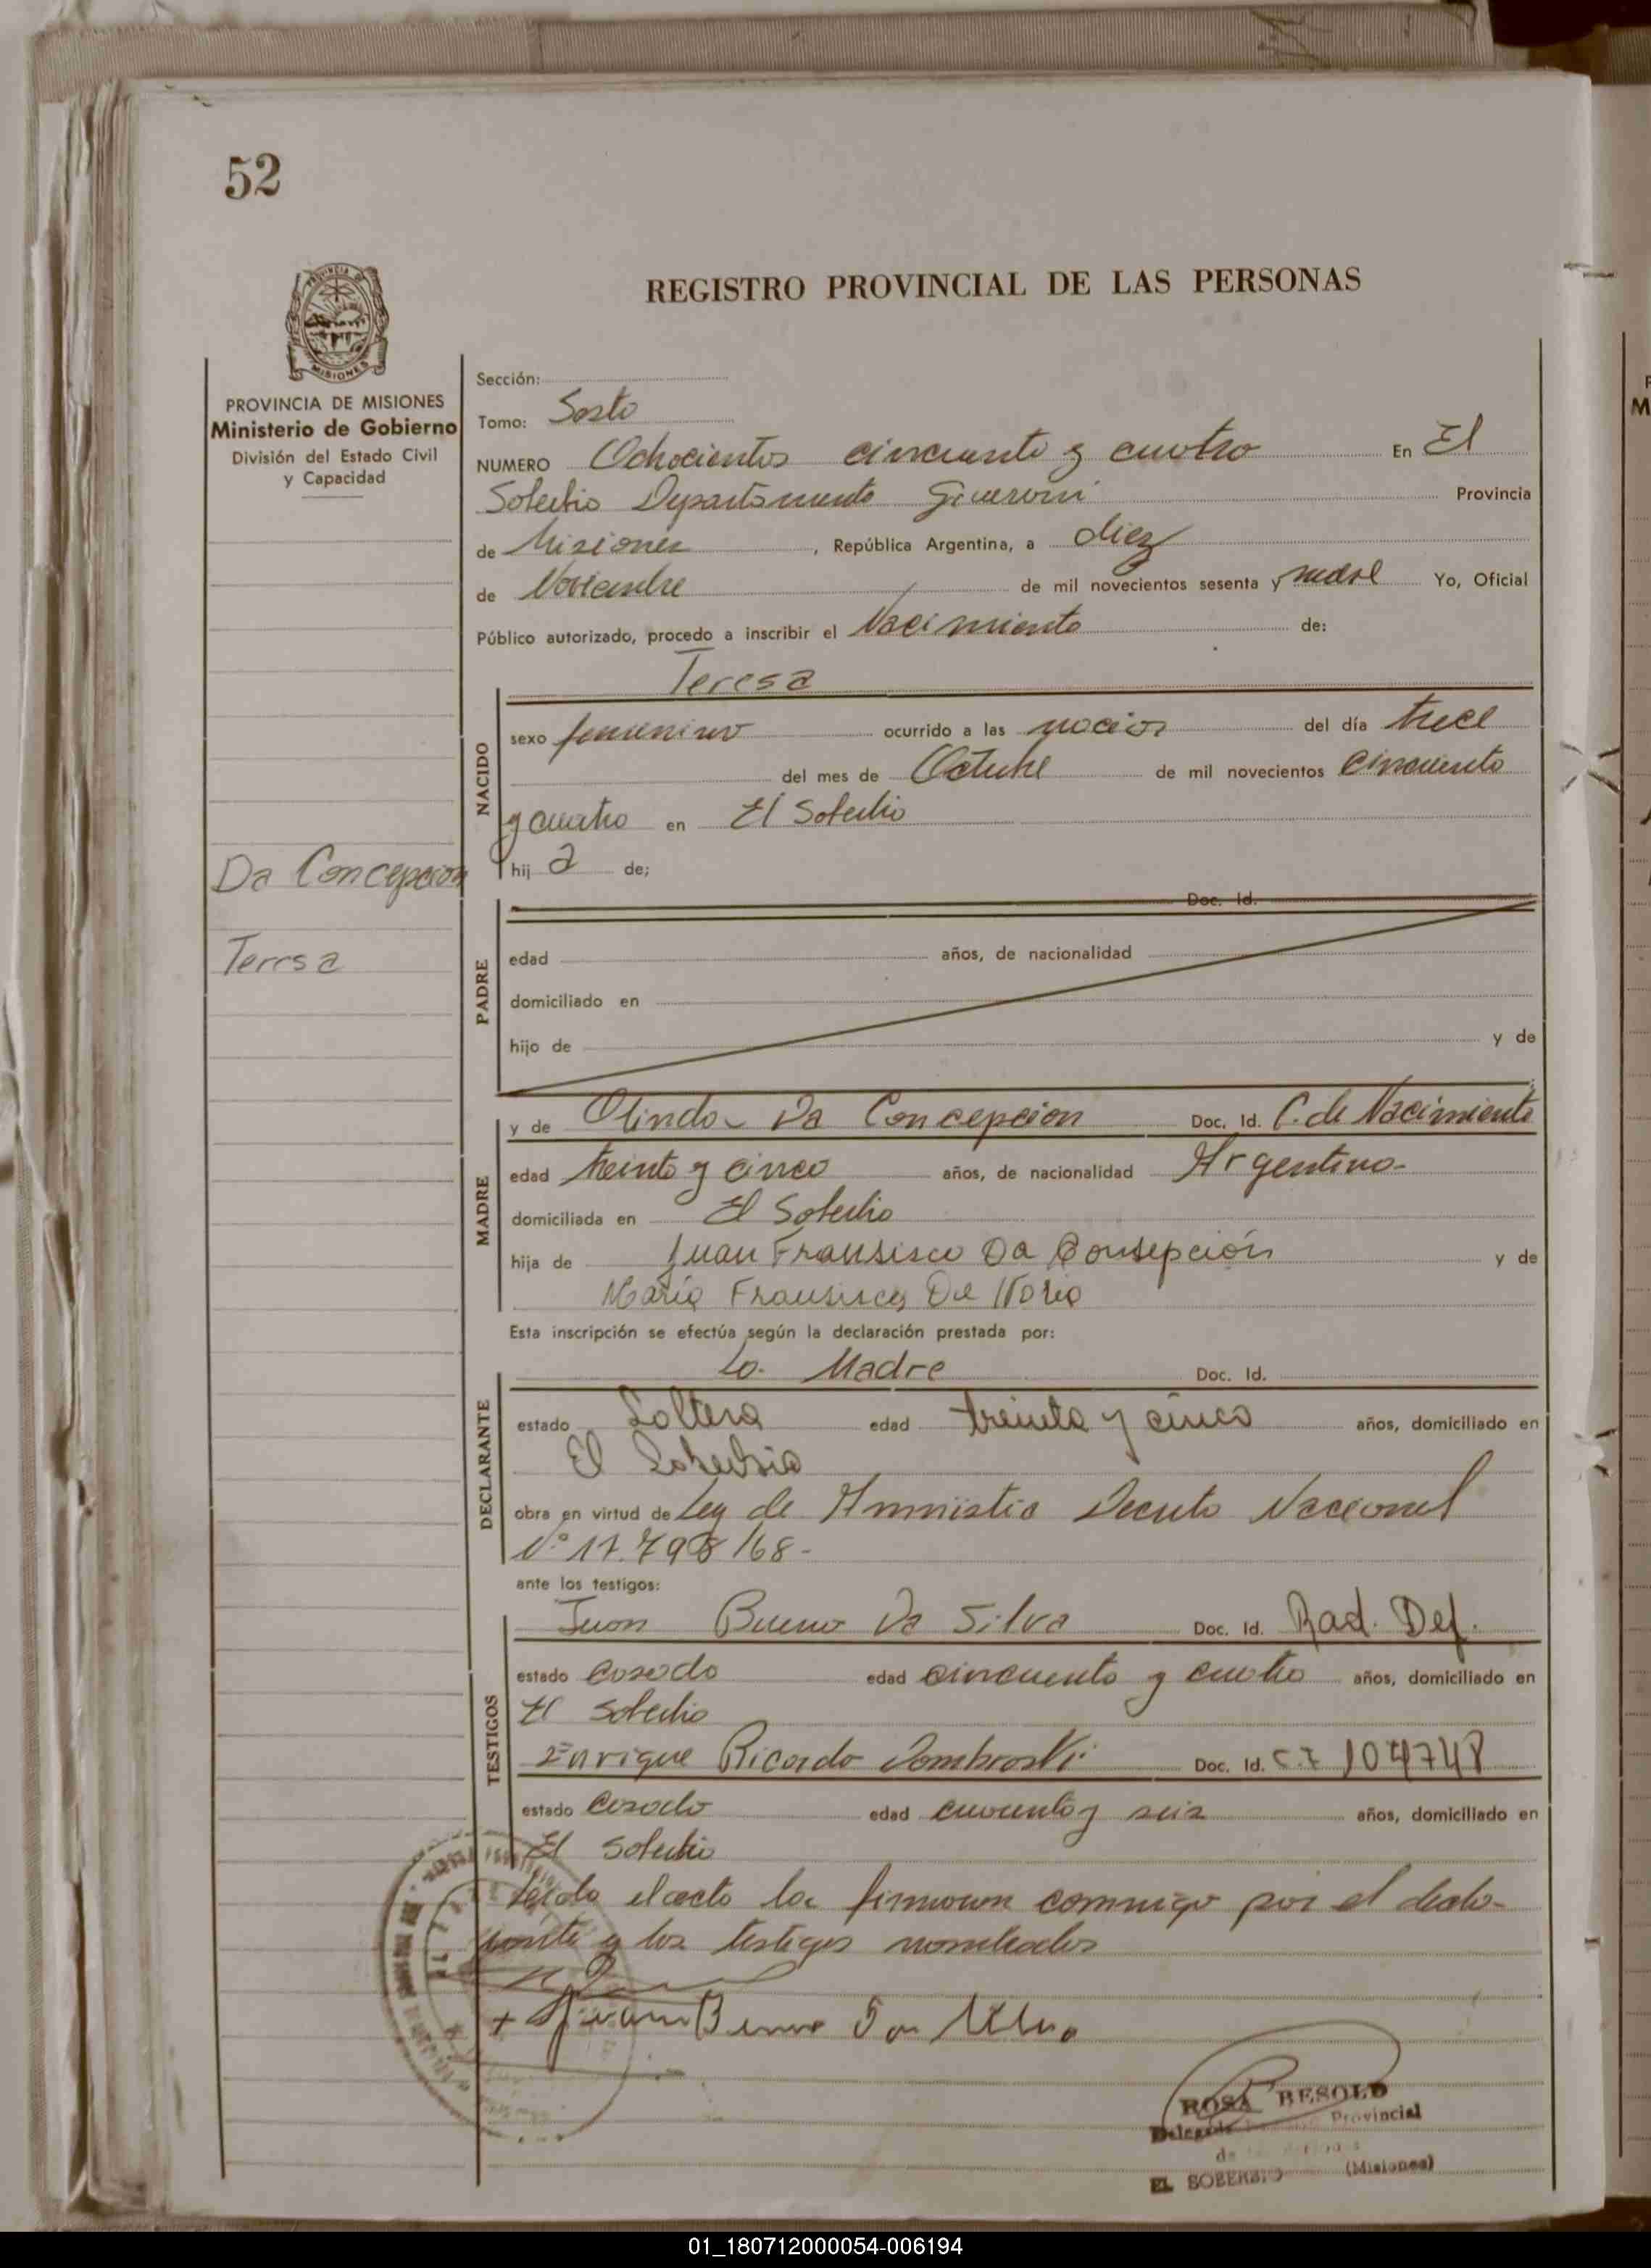 52
REGISTRO PROVINCIAL DE LAS PERSONAS
PROVINCIA DE MISIONES
MISIONES
PROVINCIA DE MISIONES
Ministerio de Gobierno
División del Estado Civil
y Capacidad
Da Concepcion
Teresa
Sección:
Tomo: Sexto
NUMERO Ochocientos cincuenta y cuatro En El
Soberbio Departamento Guarani Provincia
de Misiones, República Argentina, a diez
de Noviembre de mil novecientos sesenta y nueve Yo, Oficial
Público autorizado, procedo a inscribir el Nacimiento de:
Teresa
NACIDO
sexo femenino ocurrido a las del día trece
del mes de Octubre de mil novecientos cincuenta
y cuatro en El Soberbio
hij a de;
PADRE
Doc. Id.
edad años, de nacionalidad
domiciliado en
hijo de y de
MADRE
y de Olinda Da Concepcion Doc. Id. C. de Nacimiento
edad treinta y cinco años, de nacionalidad Argentina-
domiciliada en El Soberbio
hija de Juan Fransisco Da Consepción y de
María Fransisca De
Esta inscripción se efectúa según la declaración prestada por:
DECLARANTE
La Madre Doc. Id.
estado Soltera edad treinta y cinco años, domiciliado en
El Soberbio
obra en virtud de Ley de Amnistia Decreto Nacional
Nº 17.798/68-
ante los testigos:
TESTIGOS
Juan Bueno Da Silva Doc. Id. Rad. Def.
estado casado edad cincuenta y cuatro años, domiciliado en
El Soberbio
Enrique Ricardo Dombroski Doc. Id. C.I 104748
estado casado edad cuarenta y seis años, domiciliado en
El Soberbio
Leida el acta la firmaron conmigo por el decla-
rante y los testigos nombrados
ROSA BESOLD
Delegada Provincial
de
EL SOBERBIO (Misiones)
01_180712000054-006194